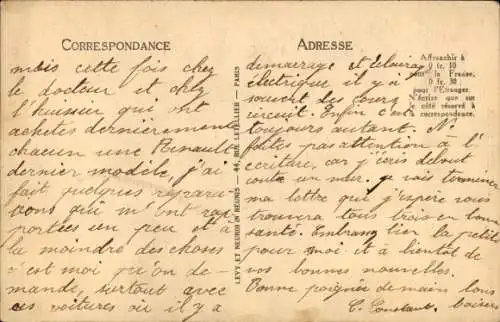 CORRESPONDANCE
mois cette fois chez
le docteur et chez
l'huissier qui ont
achetés dernièrement
chacun une Renault
dernier modèle, j'ai
fait quelques répara
vons qui m'ont rap
portées un peu et à
la moindre des choses
c'est moi qu'on de-
mande, surtout avec
ces voitures où il y a
LEVY ET NEURDIN RÉUNIS - 44, RUE LETELLIER - PARIS
ADRESSE
Affranchir à
0 fr. 10
pour la France,
0 fr. 30
pour l'Etranger
N'écrire que sur
le côté réservé à
correspondance.
démarrage et éclairag
électrique il y a
souvent des cours
circuit. Enfin c'est
toujours autant. Ne
faites pas attention à l'é-
criture, car j'écris debout
contre un mur. Je vais terminer
ma lettre qui j'espère vous
trouvera tous trois en bonne
santé. Embrassez bien la petite
pour moi et à bientôt de
vos bonnes nouvelles.
Bonne poignée de mains tous
C. Constant